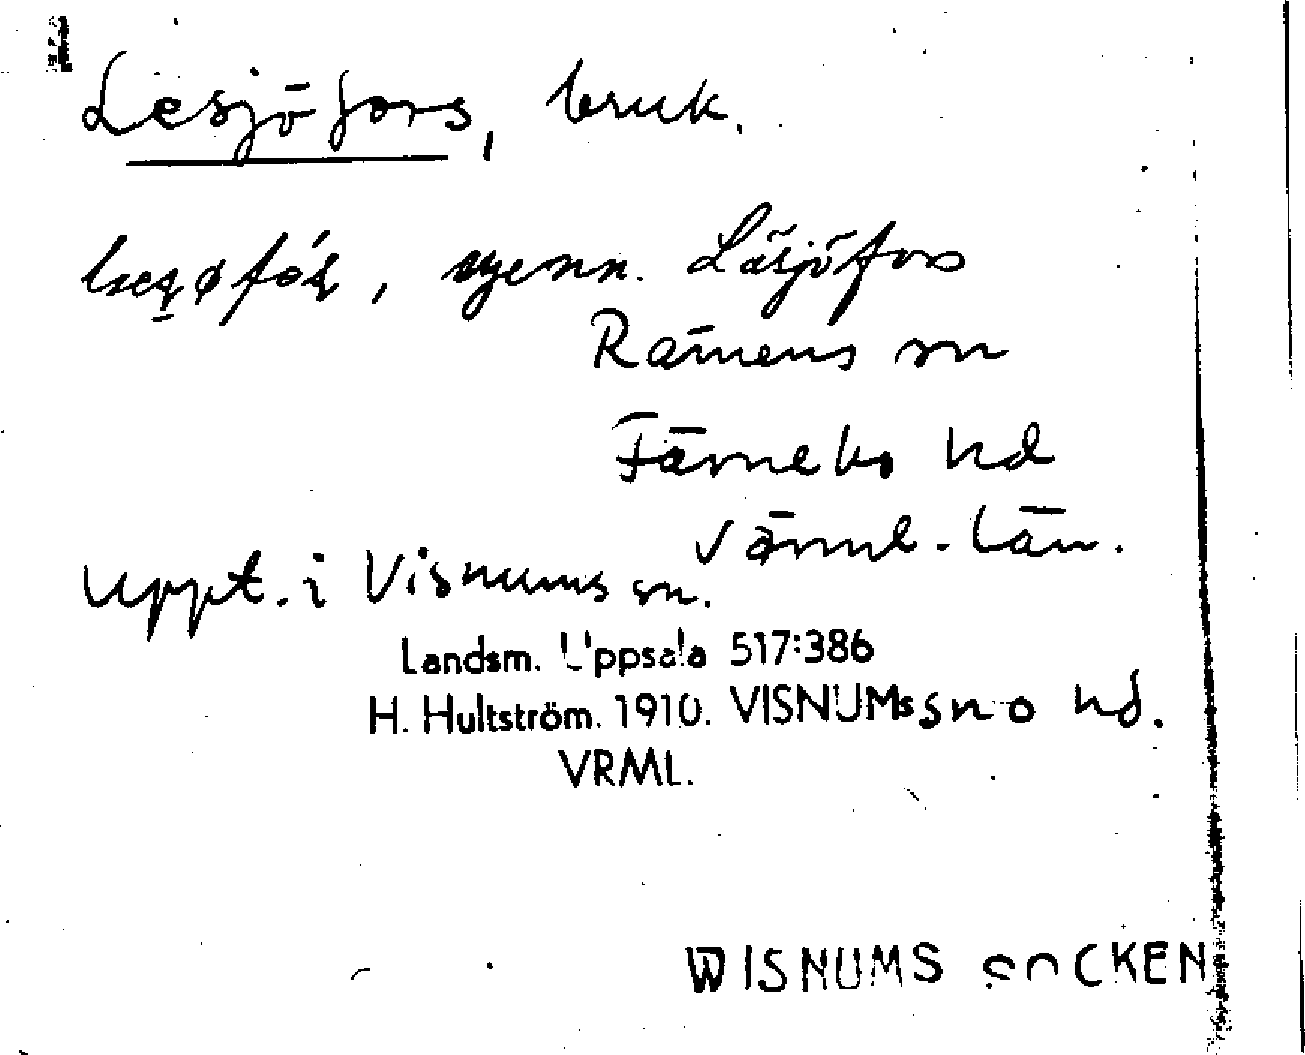 Lesjöfors, bruk.
, Läsjöfors
Rämens sn
Färnebo hd
Värml. län.
Uppt. i Visnums sn.
Landsm. Uppsala 517:386
H. Hultström. 1910. VISNUMs sn o hd.
VRML.
WISNUMS SOCKEN